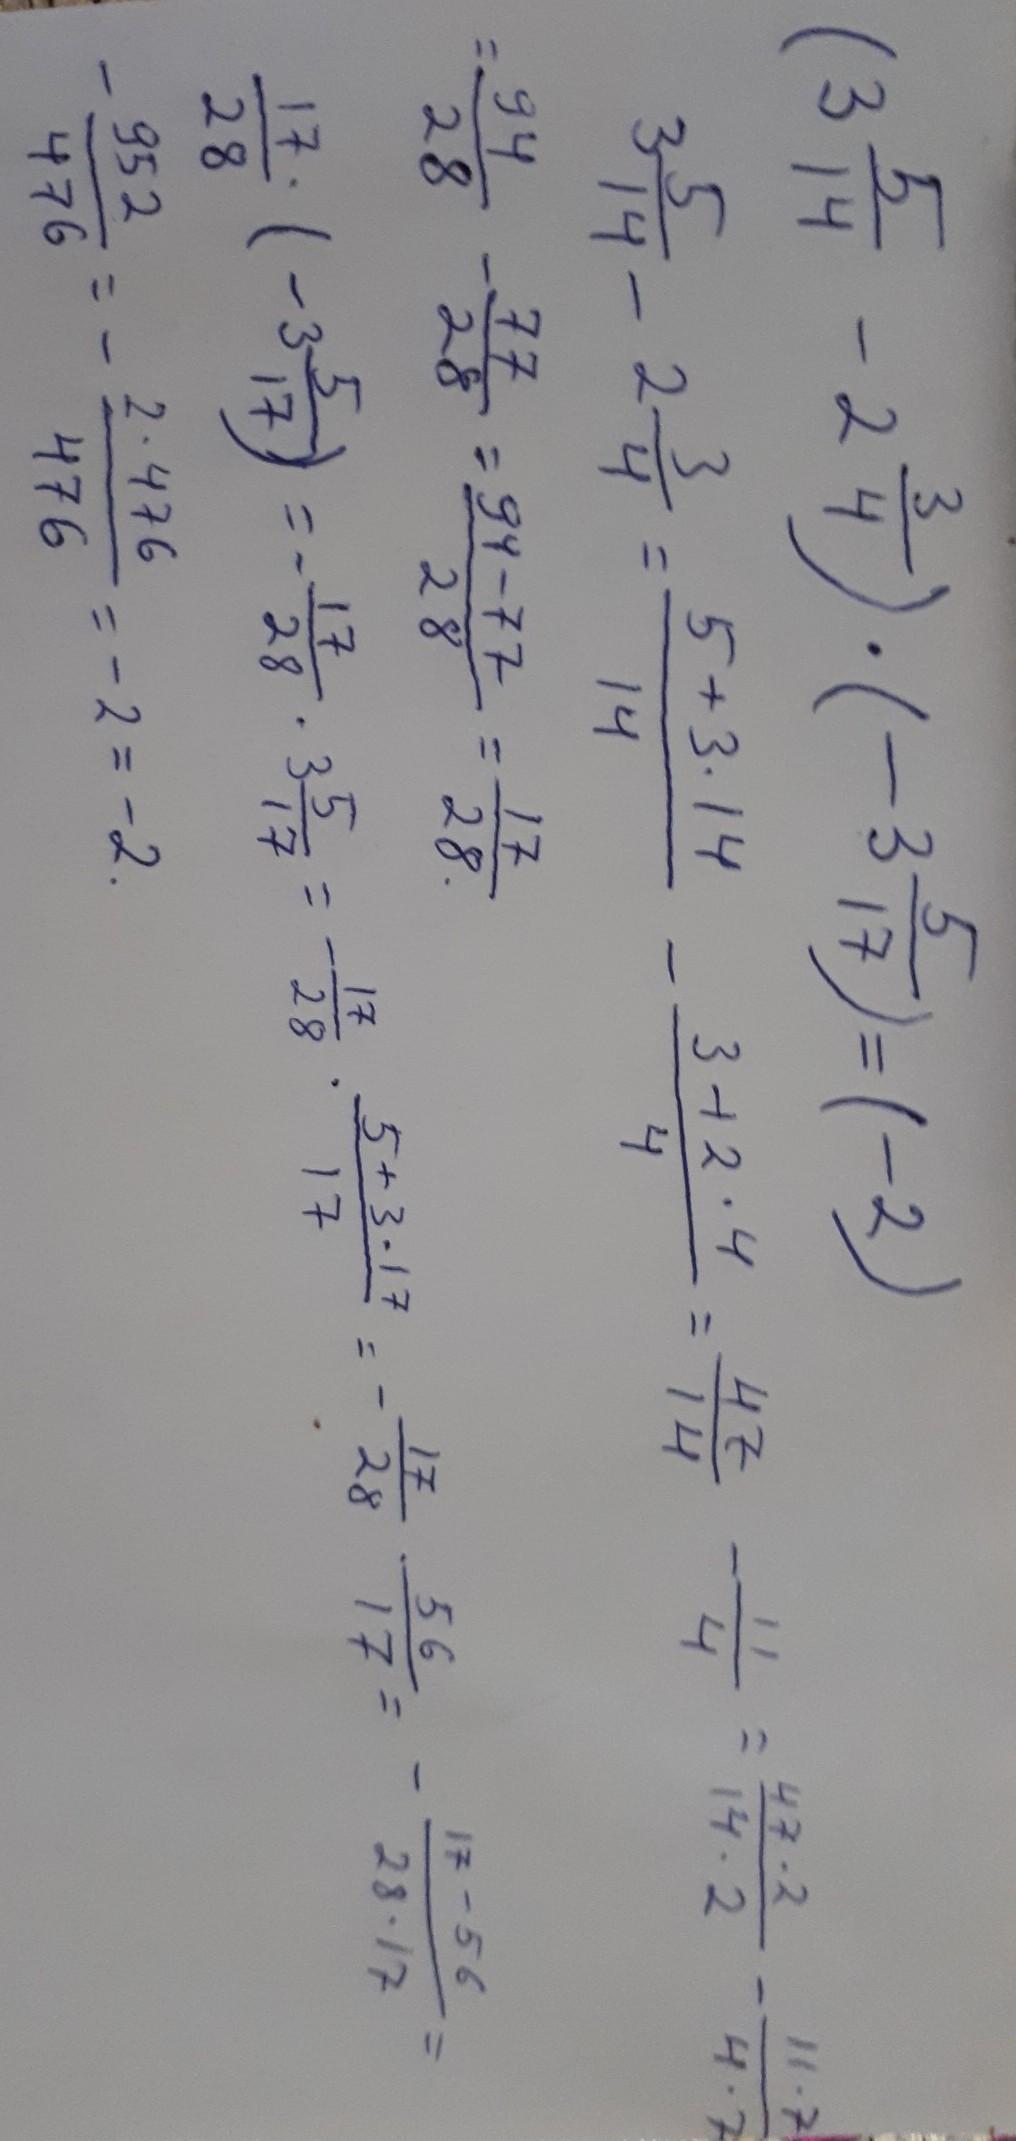 (3 5/14 - 2 3/4) · (-3 5/17) = (-2)
3 5/14 - 2 3/4 = (5+3·14)/14 - (3+2·4)/4 = 47/14 - 11/4 = (47·2)/(14·2) - (11·7)/(4·7)
= 94/28 - 77/28 = (94-77)/28 = 17/28.
17/28 · (-3 5/17) = -17/28 · 3 5/17 = -17/28 · (5+3·17)/17 = -17/28 · 56/17 = -(17-56)/(28·17) =
-952/476 = -(2·476)/476 = -2 = -2.